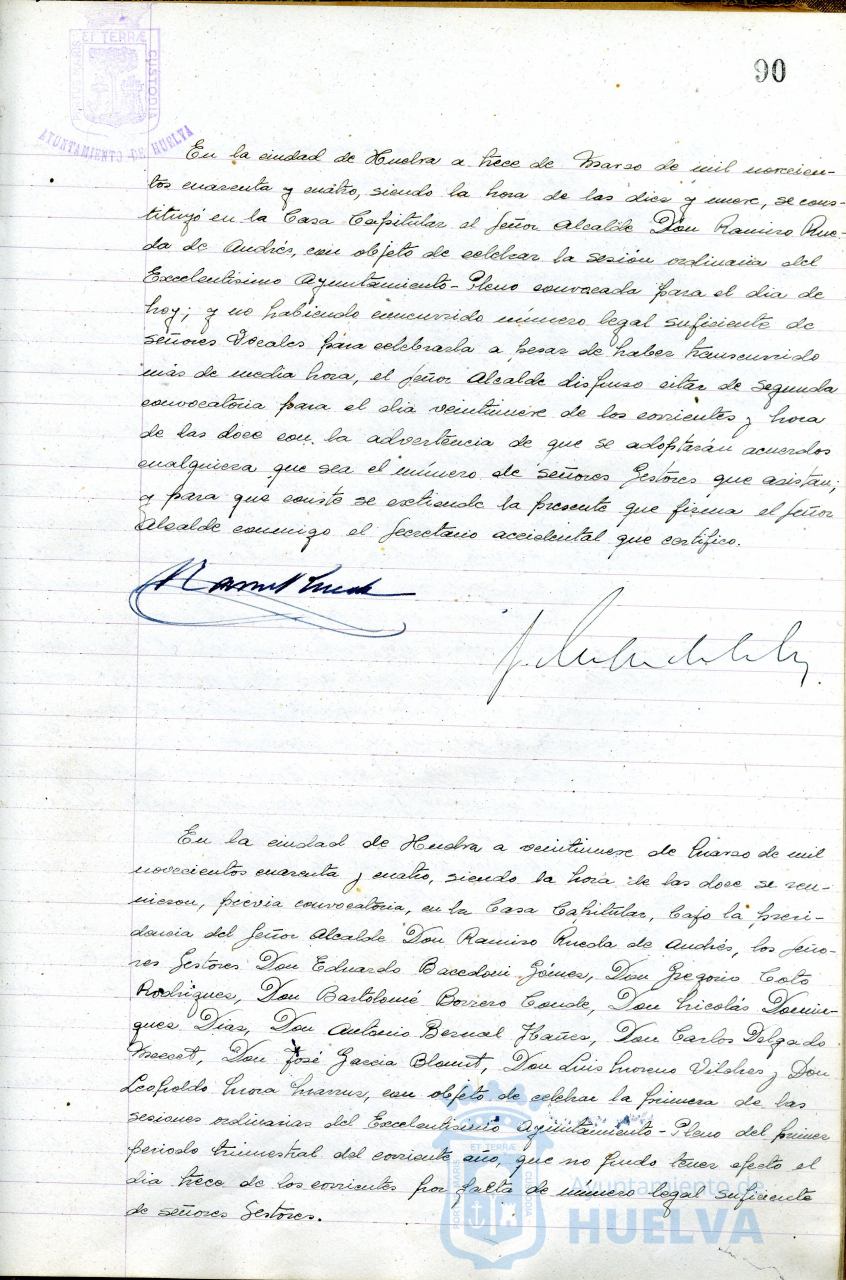 90
PORTUS MARIS ET TERRÆ CUSTODIA
AYUNTAMIENTO DE HUELVA
En la ciudad de Huelva a trece de Marzo de mil novecien-
tos cuarenta y cuatro, siendo la hora de las diez y nueve, se cons-
tituyó en la Casa Capitular el Señor Alcalde Don Ramiro Rue-
da de Andrés, con objeto de celebrar la sesión ordinaria del
Excelentísimo Ayuntamiento-Pleno convocada para el dia de
hoy; y no habiendo concurrido número legal suficiente de
señores Vocales para celebrarla a pesar de haber transcurrido
más de media hora, el Señor Alcalde dispuso citar de segunda
convocatoria para el dia veintinueve de los corrientes y hora
de las doce con la advertencia de que se adoptarán acuerdos
cualquiera que sea el número de señores Gestores que asistan;
y para que conste se extiende la presente que firma el Señor
Alcalde conmigo el Secretario accidental que certifico.
En la ciudad de Huelva a veintinueve de Marzo de mil
novecientos cuarenta y cuatro, siendo la hora de las doce se reu-
nieron, previa convocatoria, en la Casa Capitular, bajo la presi-
dencia del Señor Alcalde Don Ramiro Rueda de Andrés, los Seño-
res Gestores Don Eduardo Bacedoni Gómez, Don Gregorio Coto
Rodríguez, Don Bartolomé Borrero Conde, Don Nicolás Domin-
guez Díaz, Don Antonio Bernal Don Carlos Delgado
Don José García Don Luis Moreno Vilches y Don
Leopoldo Mora con objeto de celebrar la primera de las
sesiones ordinarias del Excelentísimo Ayuntamiento-Pleno del primer
periodo trimestral del corriente año, que no pudo tener efecto el
dia trece de los corrientes por falta de número legal suficiente
de señores Gestores.
PORTUS MARIS ET TERRÆ CUSTODIA
Ayuntamiento de
HUELVA